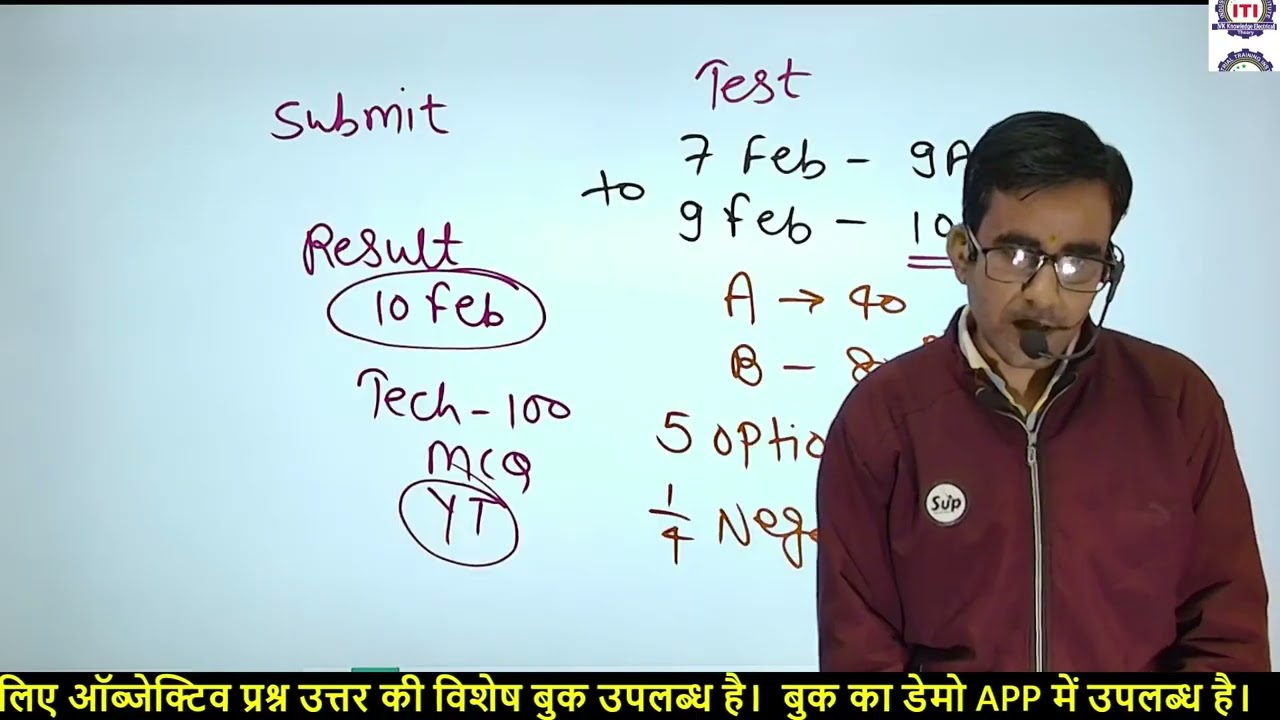 ITI
VK Knowledge Electrical
Theory
Submit
Result
10 Feb
Tech - 100
MCQ
YT
Test
7 Feb - 9A
to
9 Feb - 10
A → 40
B -
5 optio
1/4 Neg
Sup
लिए ऑब्जेक्टिव प्रश्न उत्तर की विशेष बुक उपलब्ध है। बुक का डेमो APP में उपलब्ध है।